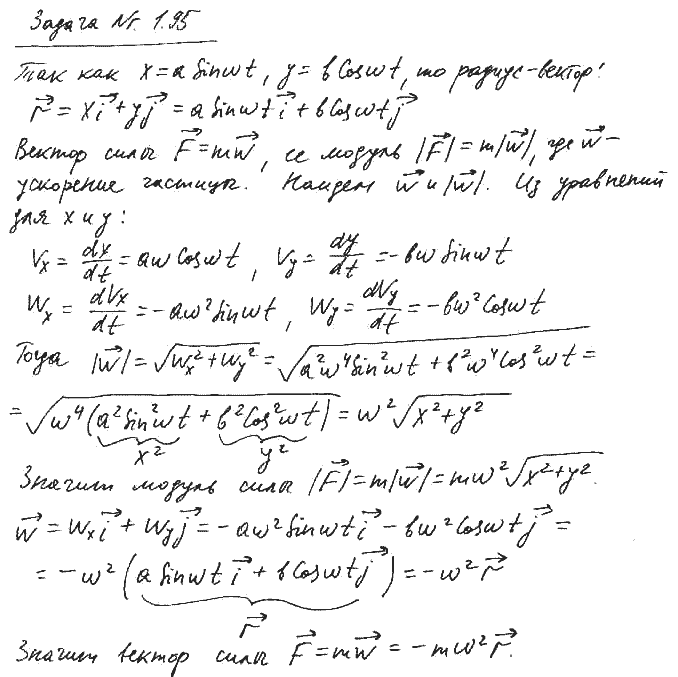 Задача Nr. 1.95
Так как x = a Sinωt, y = b Cosωt, то радиус-вектор:
r⃗ = xi⃗ + yj⃗ = a Sinωt i⃗ + b Cosωt j⃗
Вектор силы F⃗ = mw⃗, ее модуль |F⃗| = m|w⃗|, где w⃗ –
ускорение частицы. Найдем w⃗ и |w⃗|. Из уравнений
для x и y:
Vx = dx/dt = aω Cosωt, Vy = dy/dt = -bω Sinωt
Wx = dVx/dt = -aω² Sinωt, Wy = dVy/dt = -bω² Cosωt
Тогда |w⃗| = √(Wx² + Wy²) = √(a²ω⁴Sin²ωt + b²ω⁴Cos²ωt) =
= √(ω⁴(a²Sin²ωt + b²Cos²ωt)) = ω²√(x² + y²)
x² y²
Значит модуль силы |F⃗| = m|w⃗| = mω²√(x² + y²).
w⃗ = Wx i⃗ + Wy j⃗ = -aω² Sinωt i⃗ - bω² Cosωt j⃗ =
= -ω² (a Sinωt i⃗ + b Cosωt j⃗) = -ω² r⃗
r⃗
Значит вектор силы F⃗ = mw⃗ = -mω² r⃗.